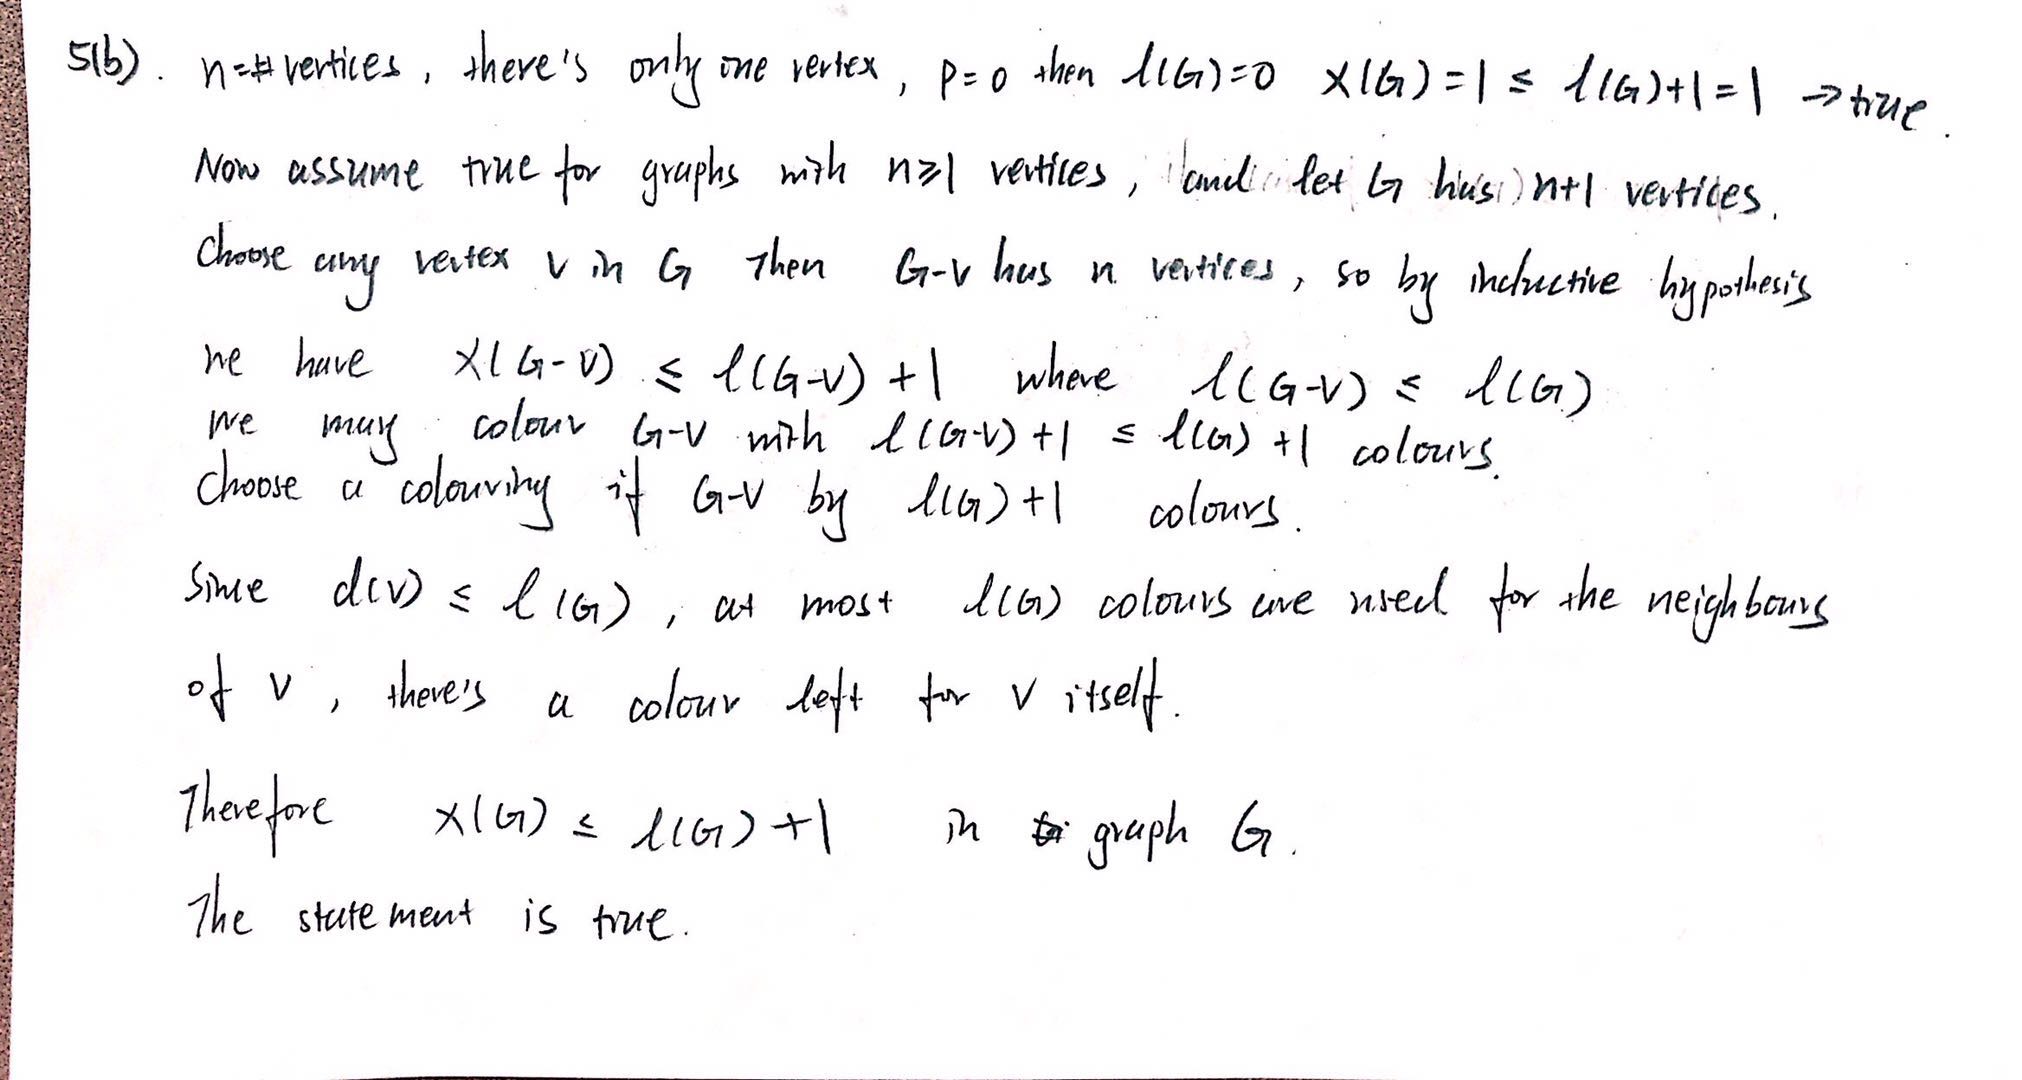 5(b). n=# vertices, there's only one vertex, p=0 then l(G)=0 χ(G)=1 ≤ l(G)+1=1 → true.
Now assume true for graphs with n≥1 vertices, and let G has n+1 vertices.
Choose any vertex v in G Then G-v has n vertices, so by inductive hypothesis
we have χ(G-v) ≤ l(G-v)+1 where l(G-v) ≤ l(G)
we may colour G-v with l(G-v)+1 ≤ l(G)+1 colours.
Choose a colouring if G-v by l(G)+1 colours.
Since d(v) ≤ l(G), at most l(G) colours are used for the neighbours
of v, there's a colour left for v itself.
Therefore χ(G) ≤ l(G)+1 in graph G.
The statement is true.